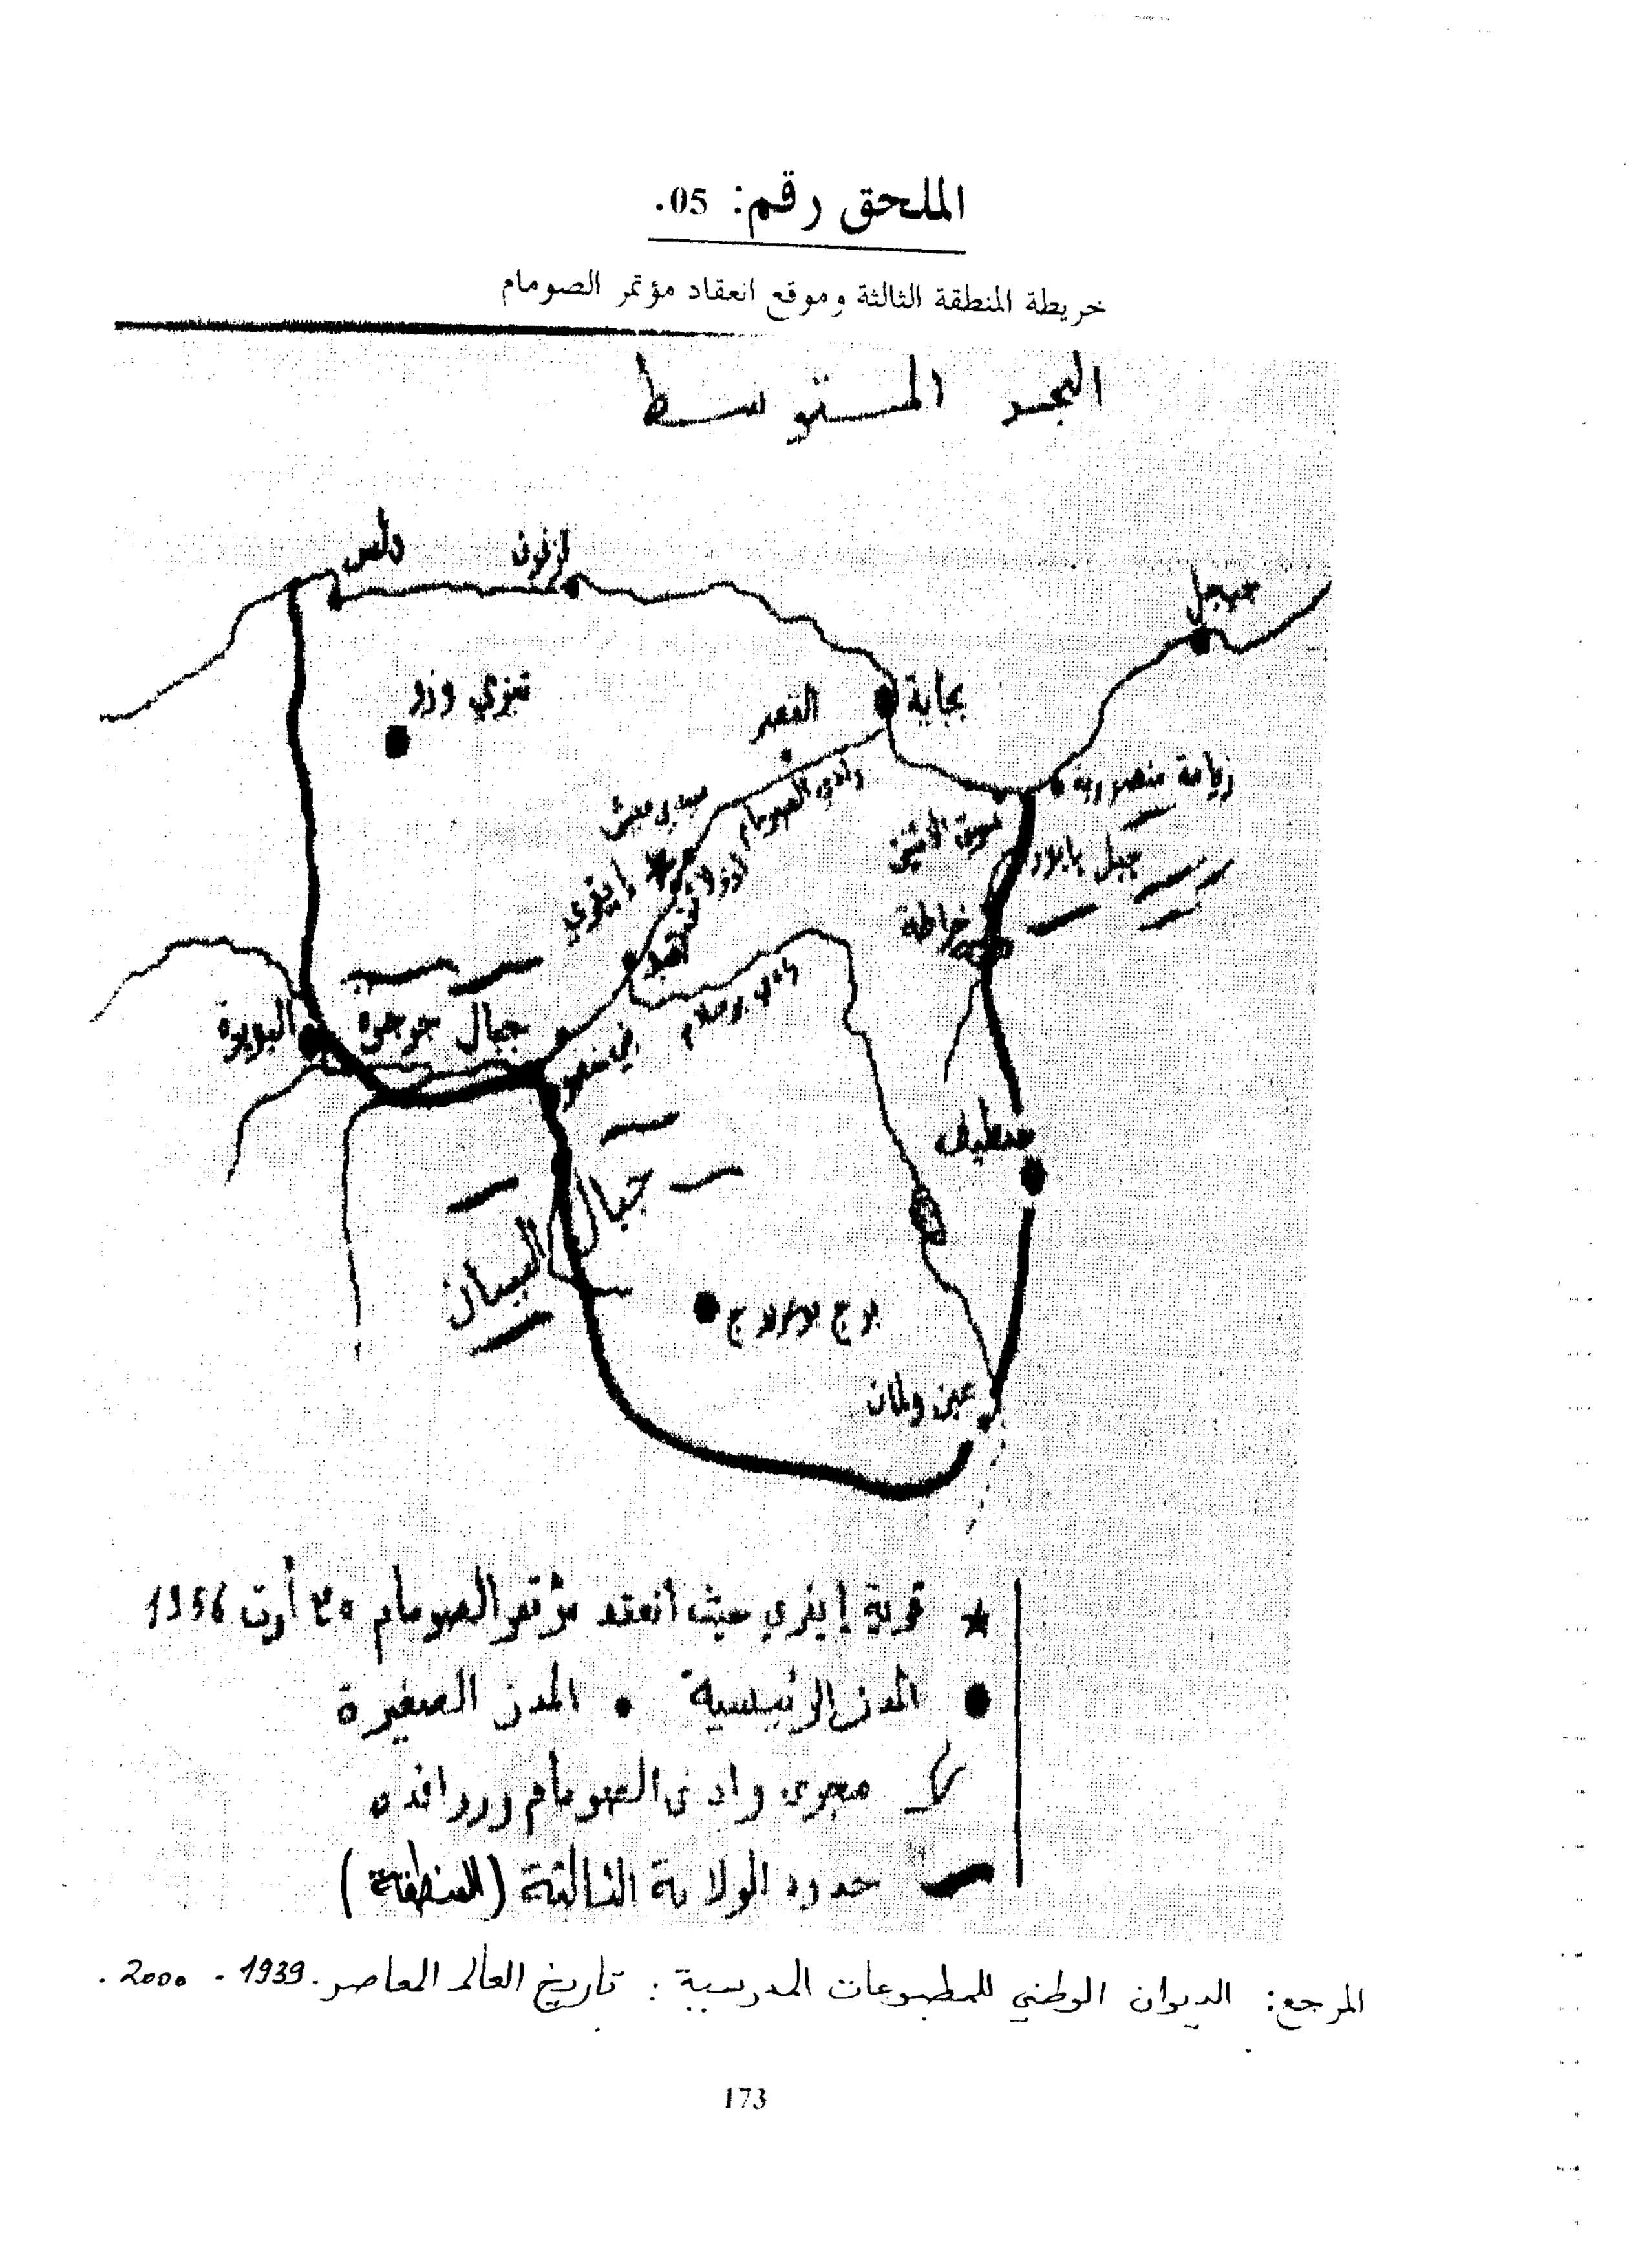 الملحق رقم: 05.
خريطة المنطقة الثالثة وموقع انعقاد مؤتمر الصومام
البحر المتوسط
دلس
ازفون
جيجل
تيزي وزو
القصر
بجاية
زيامة منصورية
وادي الصومام
سوق الاثنين
جبل بابور
إيفري
خراطة
اقبو
البويرة
جبال جرجرة
وادي بوسلام
سطيف
جبال البيبان
برج بوعريريج
عين ولمان
★ قرية إيفري حيث انعقد مؤتمر الصومام ٢٠ أوت 1956
● المدن الرئيسية • المدن الصغيرة
مجرى وادي الصومام وروافده
حدود الولاية الثالثة (المنطقة)
المرجع: الديوان الوطني للمطبوعات المدرسية: تاريخ العالم المعاصر. 1939 - 2000.
173